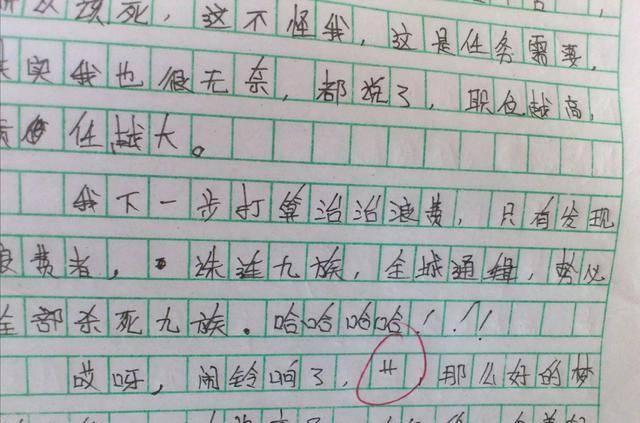 该死,这不怪我,这是任务需要,
实我也很无奈,都说了,职位越高,
责任越大。
我下一步打算治治浪费,只有发现
浪费者,诛连九族,全城通缉,势必
全部杀死九族.哈哈哈哈!!!
哎呀,闹铃响了,艹,那么好的梦